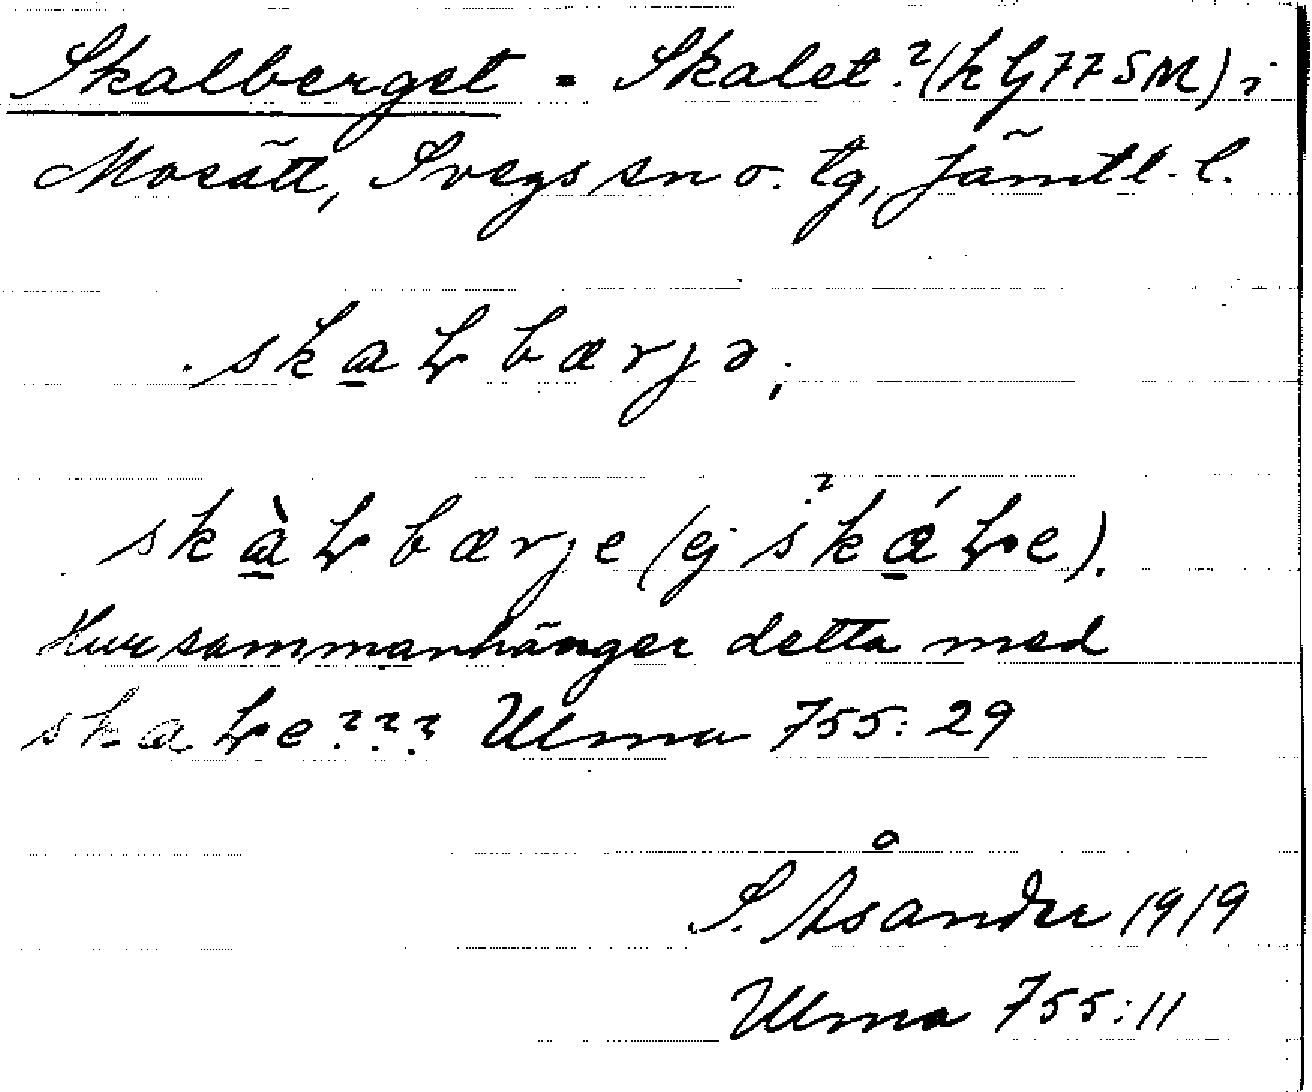 Skalberget = Skalet? (h Gj 77 SM) i
Mosätt, Svegs sn o. tg, Jämtl. l.
skaɽbærjə,
skàɽbærje (ej ? skáɽe).
Hur sammanhänger detta med
skaɽe??? Ulma 755:29
S. Åsander 1919
Ulma 755:11